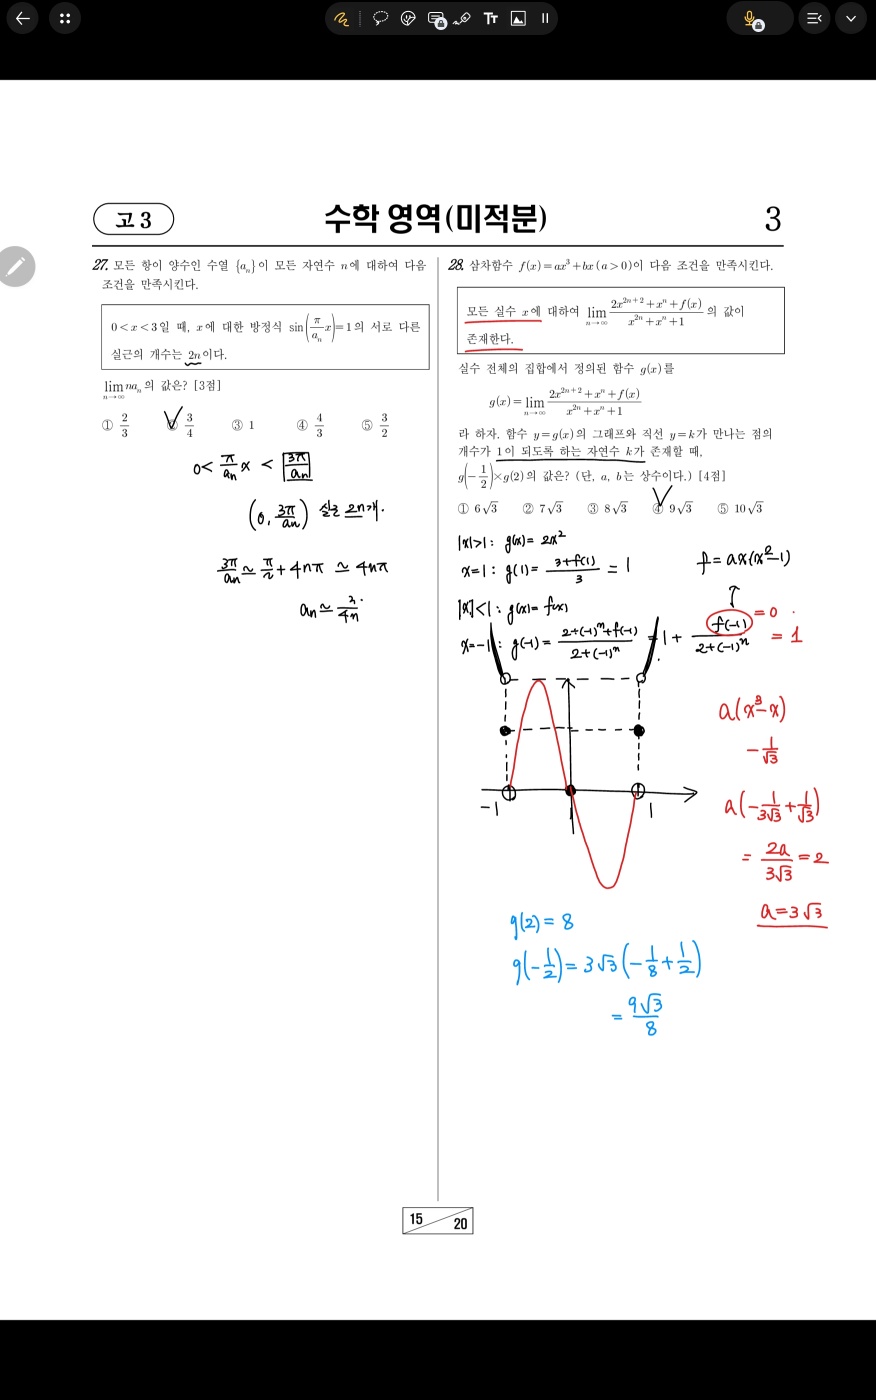 Tr
고3
수학 영역(미적분)
3
27. 모든 항이 양수인 수열 {aₙ}이 모든 자연수 n에 대하여 다음
조건을 만족시킨다.
0<x<3일 때, x에 대한 방정식 sin(π/aₙ x)=1의 서로 다른
실근의 개수는 2n이다.
lim n→∞ naₙ의 값은? [3점]
① 2/3 ② 3/4 ③ 1 ④ 4/3 ⑤ 3/2
0< π/an x < 3π/an
(0, 3π/an) 실근 2n개.
3π/an ≃ π/2 + 4nπ ≃ 4nπ
an ≃ 3/4n
28. 삼차함수 f(x)=ax³+bx (a>0)이 다음 조건을 만족시킨다.
모든 실수 x에 대하여 lim n→∞ (2x²ⁿ⁺²+xⁿ+f(x))/(x²ⁿ+xⁿ+1)의 값이
존재한다.
실수 전체의 집합에서 정의된 함수 g(x)를
g(x)=lim n→∞ (2x²ⁿ⁺²+xⁿ+f(x))/(x²ⁿ+xⁿ+1)
라 하자. 함수 y=g(x)의 그래프와 직선 y=k가 만나는 점의
개수가 1이 되도록 하는 자연수 k가 존재할 때,
g(-1/2)×g(2)의 값은? (단, a, b는 상수이다.) [4점]
① 6√3 ② 7√3 ③ 8√3 ④ 9√3 ⑤ 10√3
|x|>1: g(x)= 2x²
x=1: g(1)= (3+f(1))/3 = 1
f= ax(x²-1)
|x|<1: g(x)= f(x)
x=-1: g(-1)= (2+(-1)ⁿ+f(-1))/(2+(-1)ⁿ) = 1 + f(-1)/(2+(-1)ⁿ)
=0
= 1
-1
1
a(x³-x)
-1/√3
a(-1/3√3 + 1/√3)
= 2a/3√3 = 2
a=3√3
g(2)= 8
g(-1/2)= 3√3(-1/8+1/2)
= 9√3/8
15
20